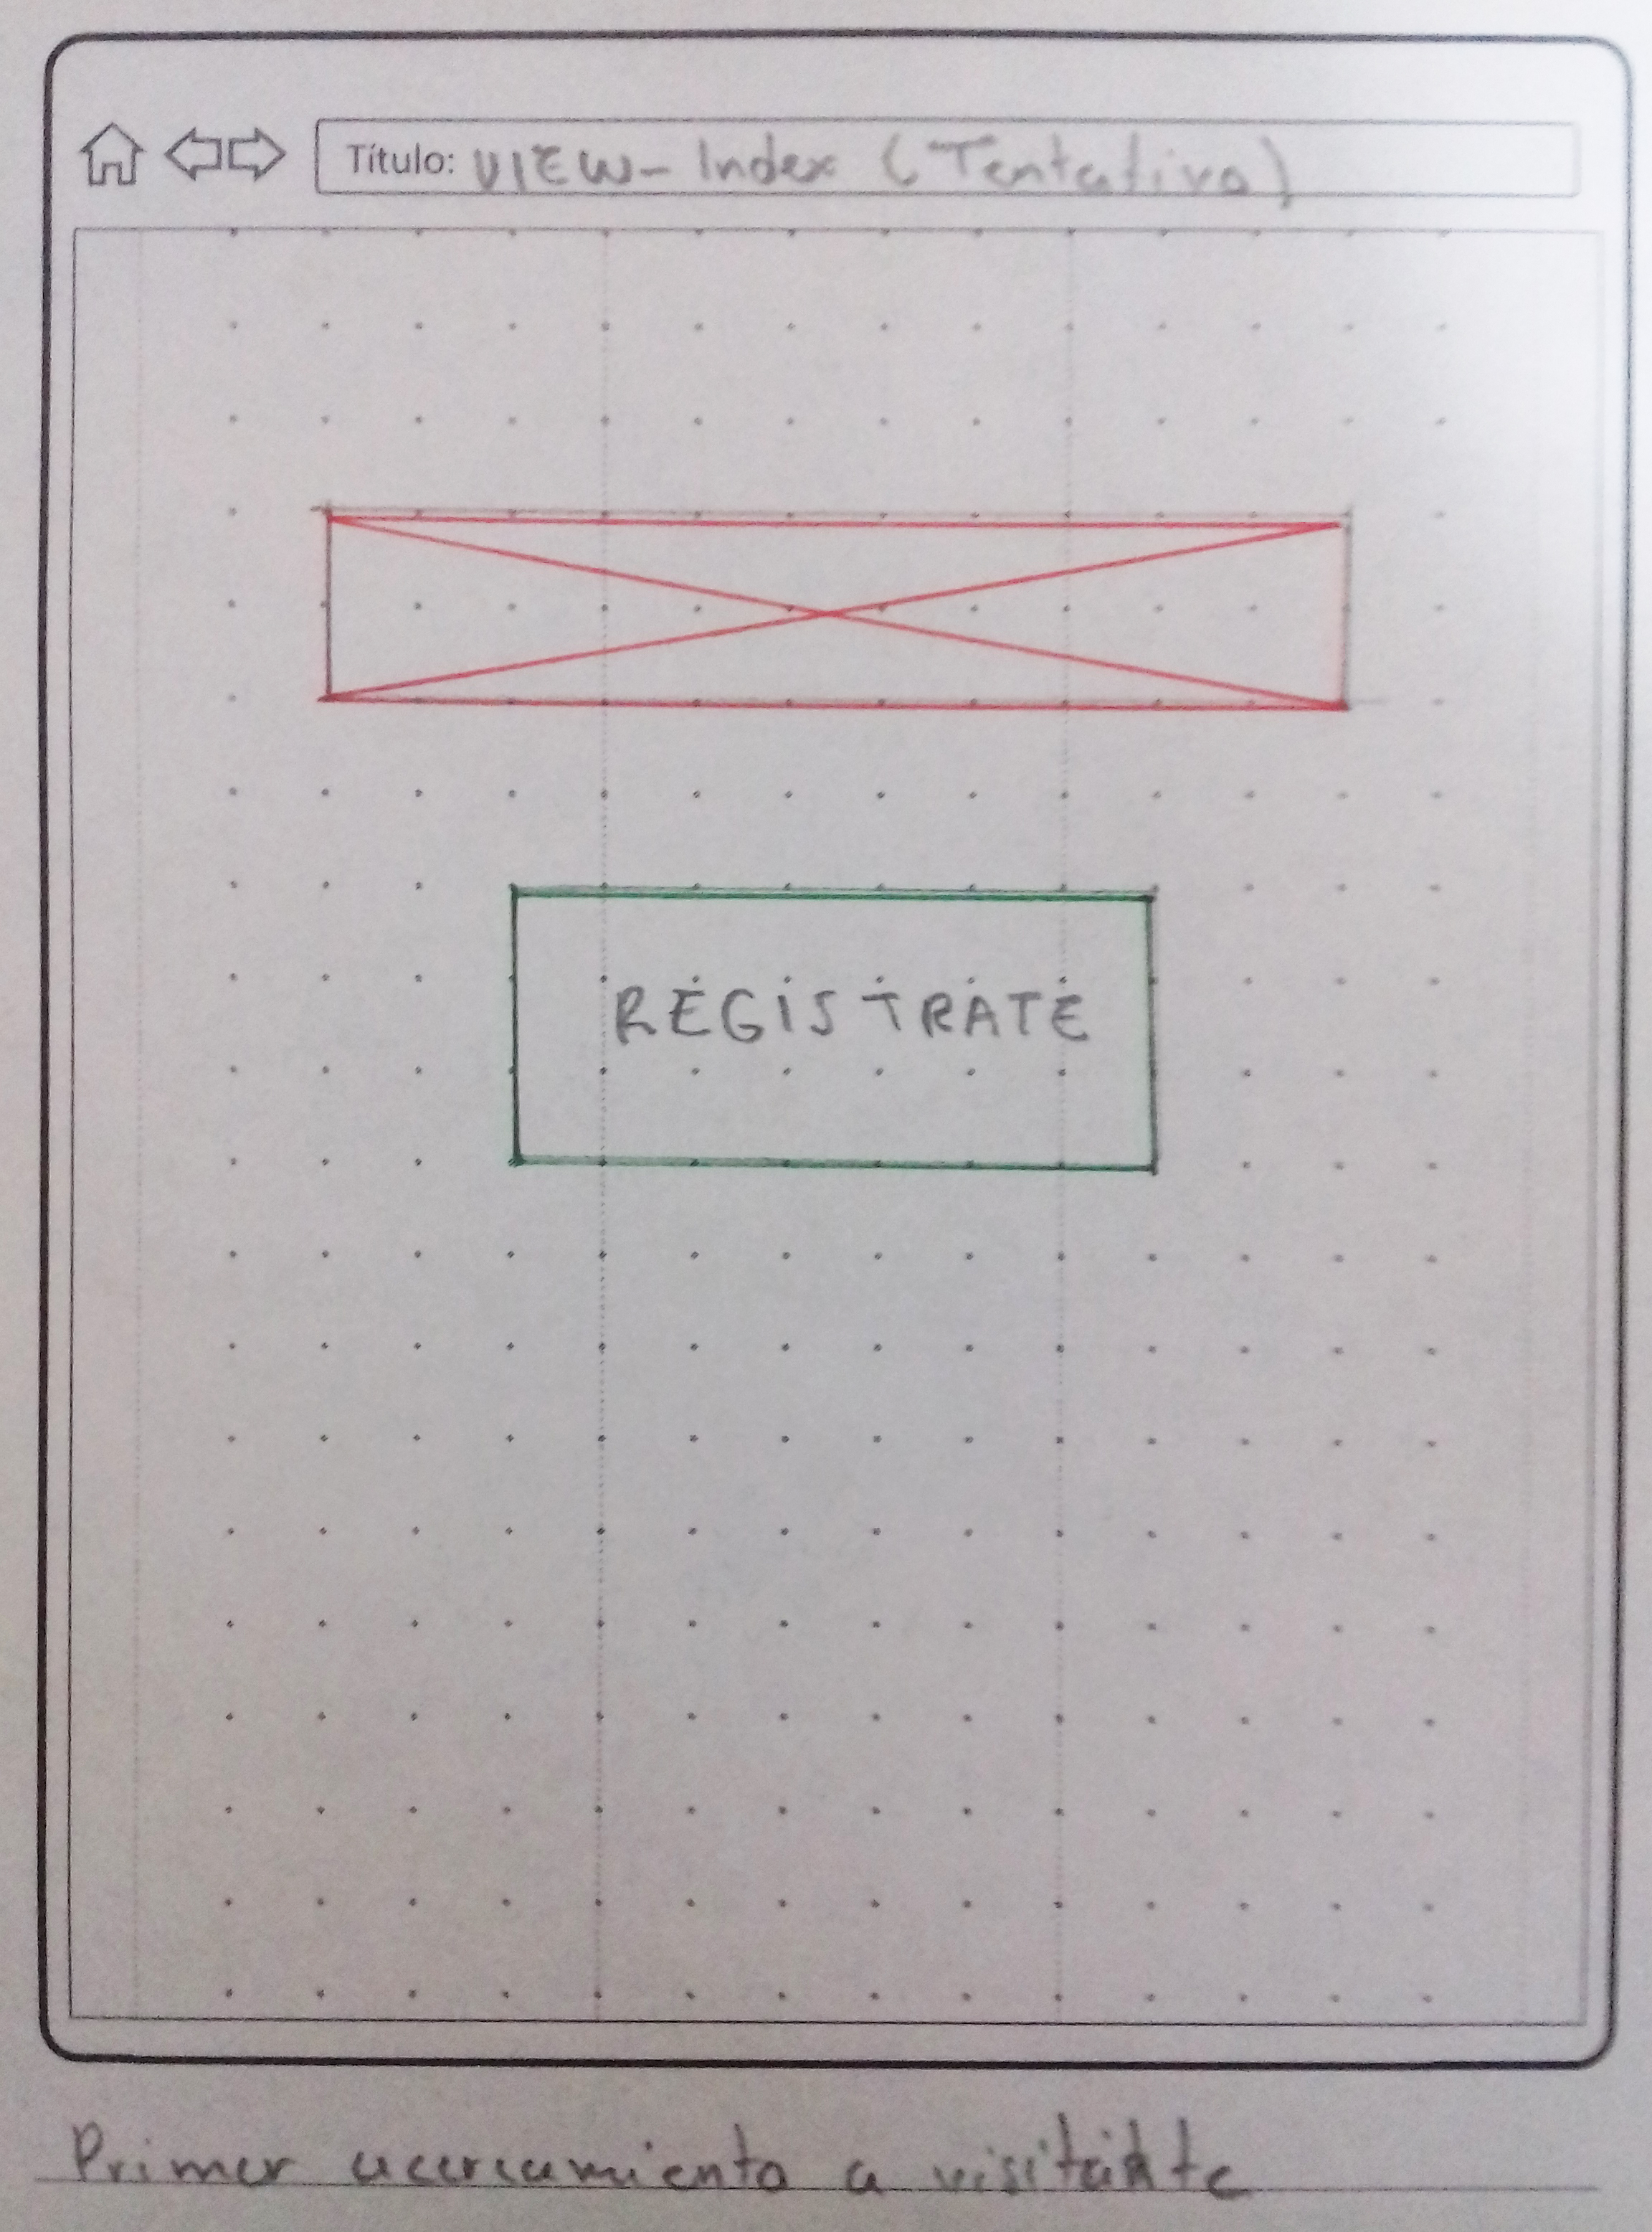 Título: VIEW- Index (Tentativo)
REGISTRATE
Primer acercamiento a visitante